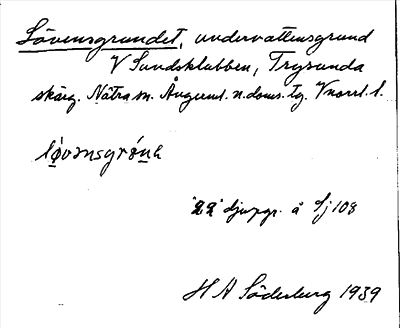 Lövensgrundet, undervattensgrund
V Sundsklubben, Trysunda
skärg. Nätra sn. Ångerml. n. doms. tg. Vnorrl. l.
"22" djupgr. å Sj 108
H A Söderberg 1939